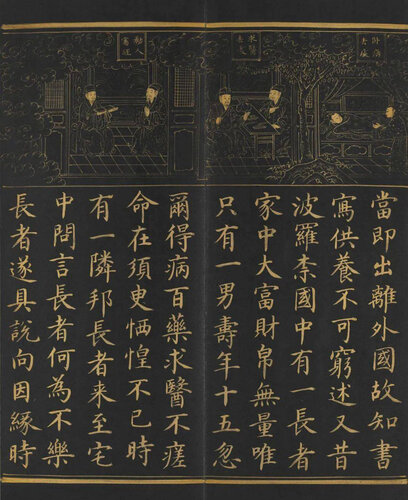 當即出離外國故知書
寫供養不可窮述又昔
波羅柰國中有一長者
家中大富財帛無量唯
只有一男壽年十五忽
爾得病百藥求醫不瘥
命在須臾恓惶不已時
有一隣邦長者來至宅
中問言長者何為不樂
長者遂具說向因緣時